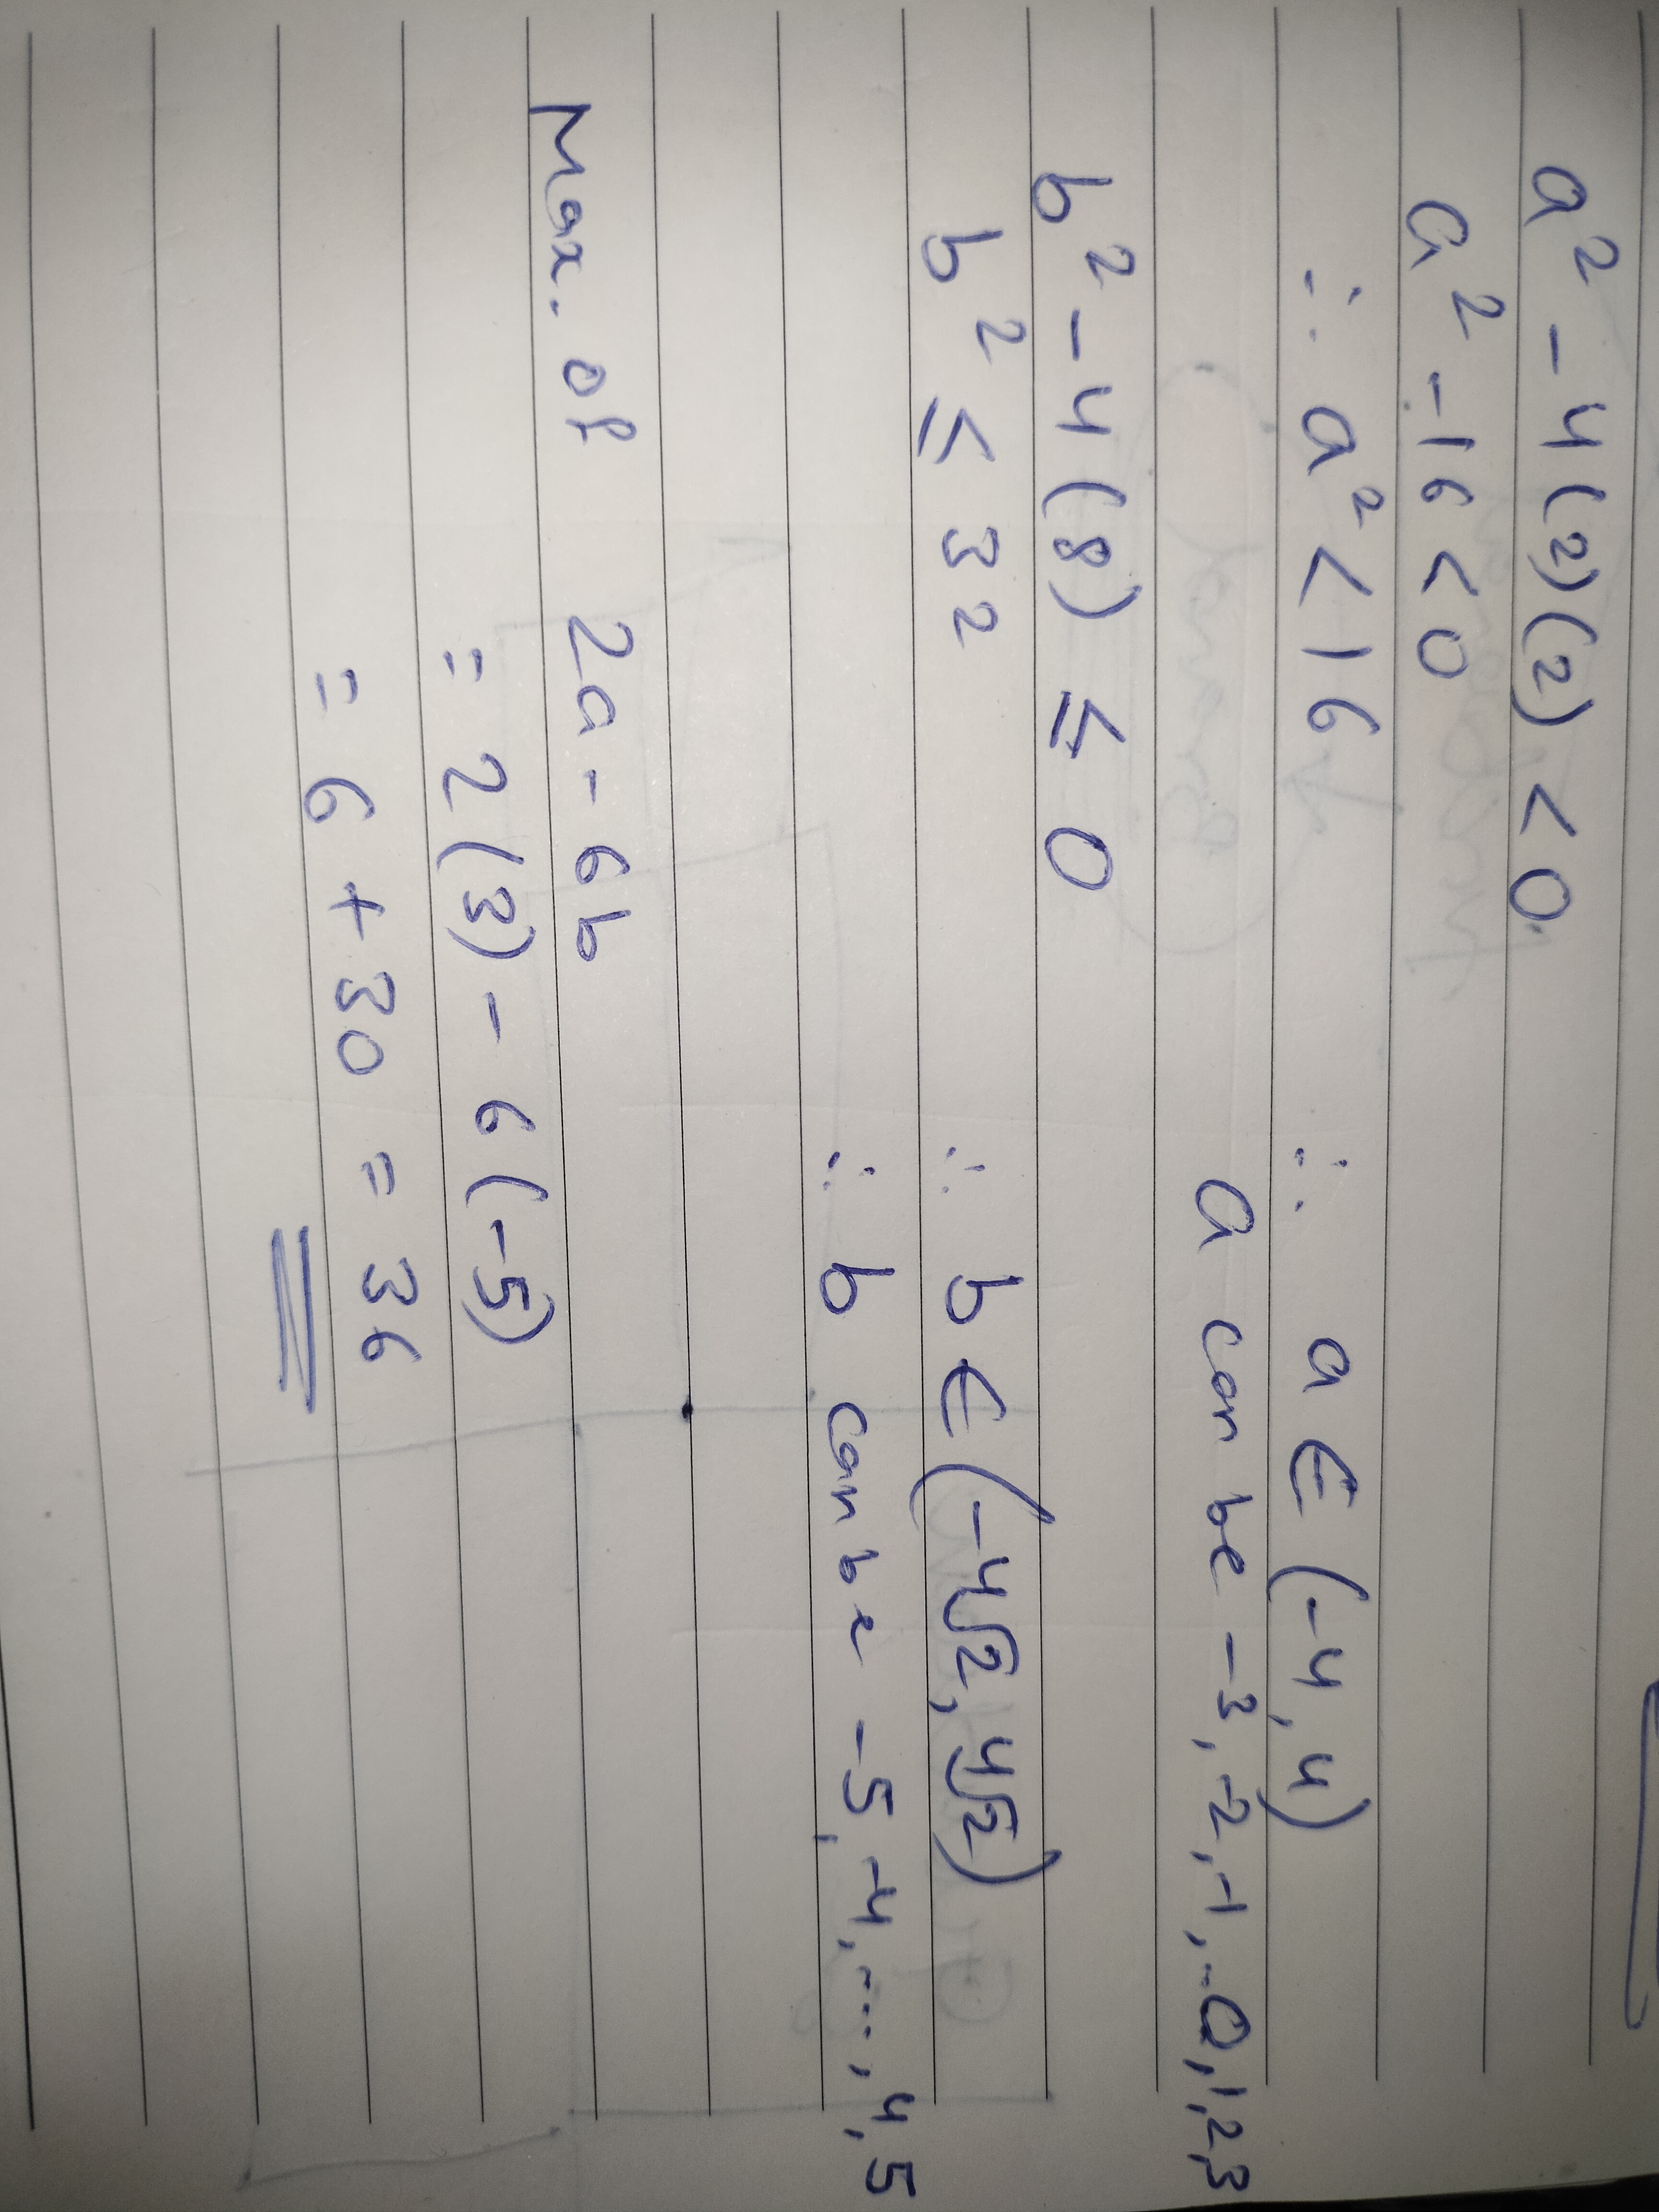 a² - 4(2)(2) < 0.
a² - 16 < 0
∴ a² < 16 ∴ a ∈ (-4, 4)
a can be -3, -2, -1, 0, 1, 2, 3
b² - 4(8) ≤ 0
b² ≤ 32 ∴ b ∈ (-4√2, 4√2)
∴ b can be -5, -4, ..., 4, 5
Max. of 2a - 6b
= 2(3) - 6(-5)
= 6 + 30 = 36